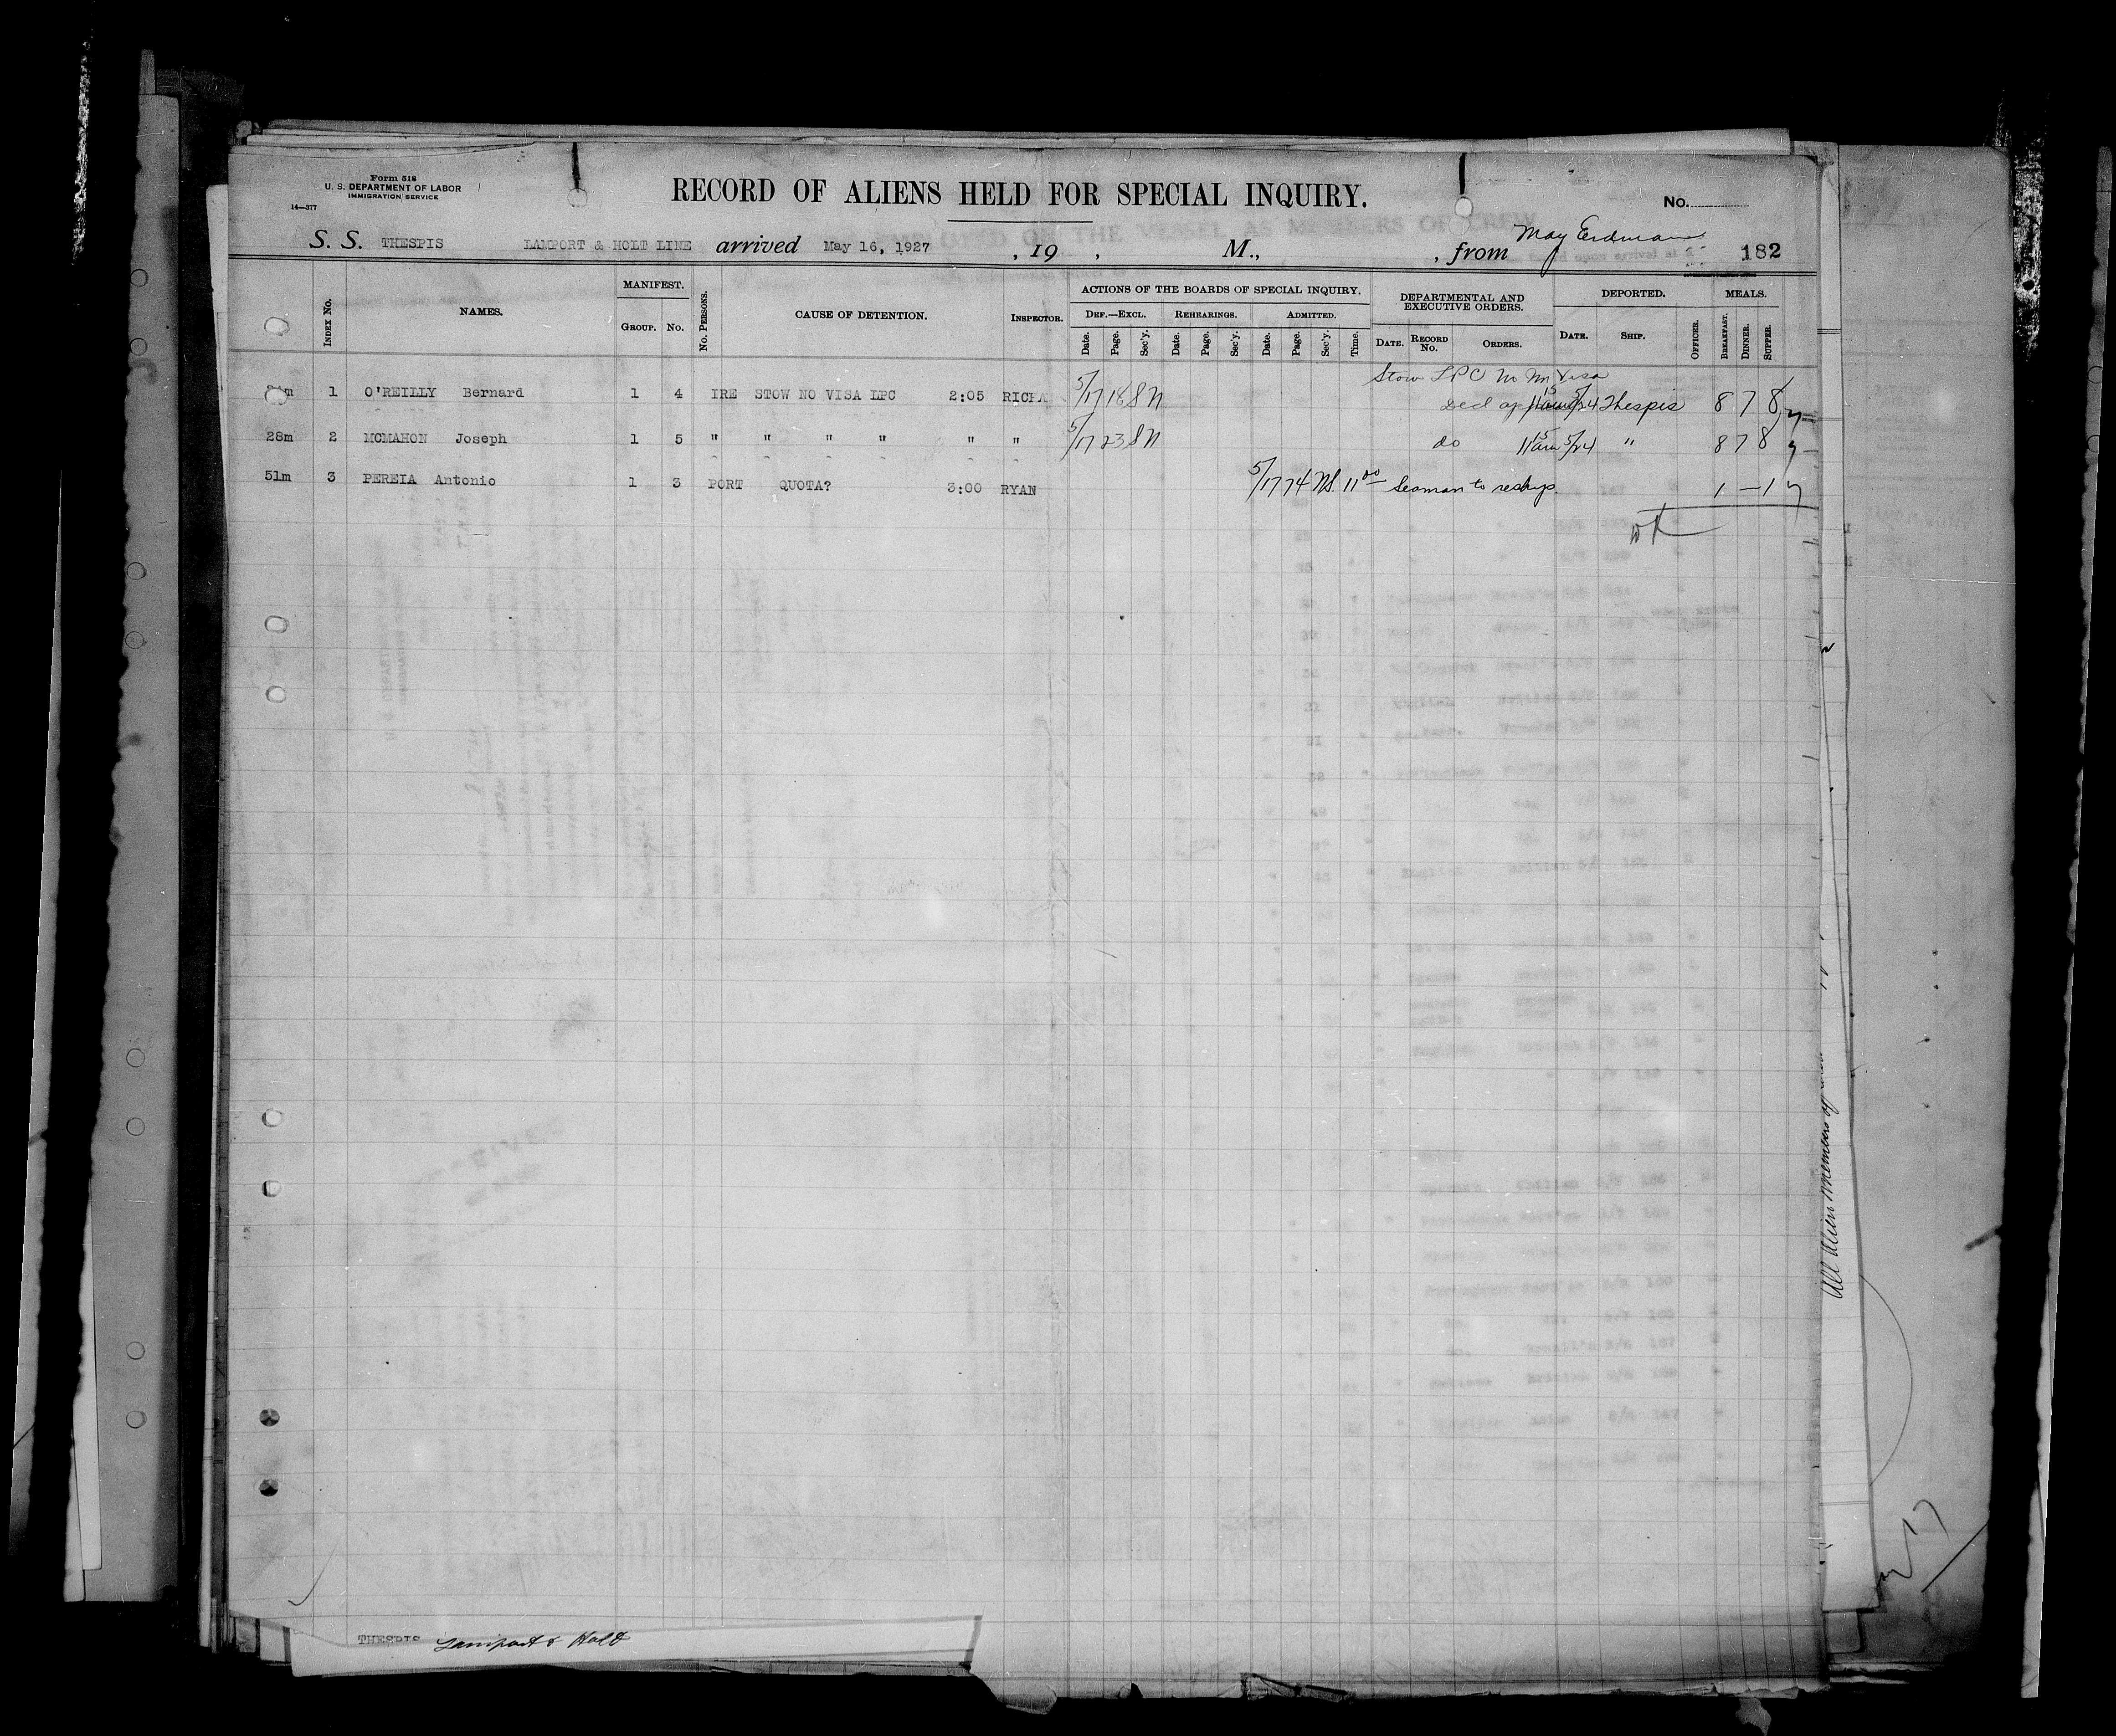 Form 518
U. S. DEPARTMENT OF LABOR
IMMIGRATION SERVICE
14—377
RECORD OF ALIENS HELD FOR SPECIAL INQUIRY.
No.
S. S. THESPIS LAMPORT & HOLT LINE arrived May 16, 1927 , 19 , M., , from May Erdman 182
Index No. NAMES. MANIFEST. Group. No. No. Persons. CAUSE OF DETENTION. Inspector. ACTIONS OF THE BOARDS OF SPECIAL INQUIRY. Def.—Excl. Date. Page. Sec'y. Rehearings. Date. Page. Sec'y. Admitted. Date. Page. Sec'y. Time. DEPARTMENTAL AND EXECUTIVE ORDERS. Date. Record No. Orders. DEPORTED. Date. Ship. Officer. MEALS. Breakfast. Dinner. Supper.
Stow LPC no Visa
m 1 O'REILLY Bernard 1 4 IRE STOW NO VISA LPC 2:05 5/17 18 SN 5/24 Thespis 8 7 8
28m 2 MCMAHON Joseph 1 5 " " " " " " 5/17 23 SN do 11 15 am 5/24 " 8 7 8
51m 3 PEREIA Antonio 1 3 PORT QUOTA? 3:00 RYAN 5/17 74 NS 11 00 Seaman to reship. 1 — 1
All Alien members of
THESPIS Lamport & Holt